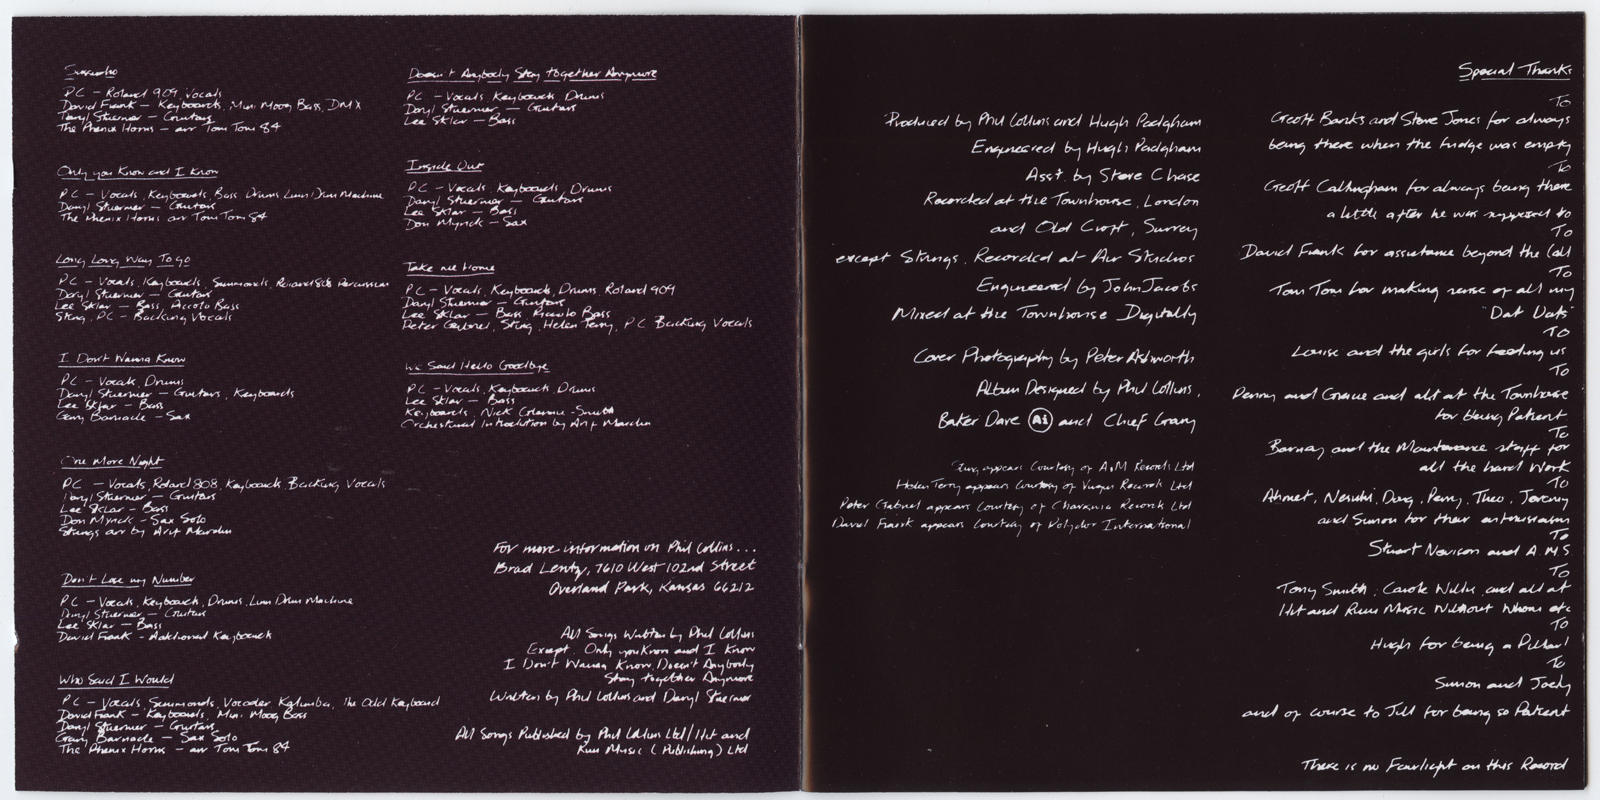 Sussudio
PC - Roland 909, Vocals
David Frank - Keyboards, Mini Moog Bass, DMX
Daryl Stuermer - Guitars
The Phenix Horns - arr Tom Tom 84
Only you Know and I Know
PC - Vocals, Keyboards, Bass Drums Linn Drum Machine
Daryl Stuermer - Guitars
The Phenix Horns arr Tom Tom 84
Long Long Way To go
PC - Vocals, Keyboards, Simmonds, Roland 808 Percussion
Daryl Stuermer - Guitars
Lee Sklar - Bass, Piccolo Bass
Sting, PC - Backing Vocals
I Don't Wanna Know
PC - Vocals, Drums
Daryl Stuermer - Guitars, Keyboards
Lee Sklar - Bass
Gary Barnacle - Sax
One More Night
PC - Vocals, Roland 808, Keyboards, Backing Vocals
Daryl Stuermer - Guitars
Lee Sklar - Bass
Don Myrick - Sax Solo
Strings arr by Arif Mardin
Don't Lose my Number
PC - Vocals, Keyboards, Drums, Linn Drum Machine
Daryl Stuermer - Guitars
Lee Sklar - Bass
David Frank - Additional Keyboards
Who Said I Would
PC - Vocals, Simmonds, Vocoder Kalimba, the Odd Keyboard
David Frank - Keyboards, Mini Moog Bass
Daryl Stuermer - Guitars
Gary Barnacle - Sax Solo
The Phenix Horns - arr Tom Tom 84
Doesn't Anybody Stay together Anymore
PC - Vocals, Keyboards, Drums
Daryl Stuermer - Guitars
Lee Sklar - Bass
Inside Out
PC - Vocals, Keyboards, Drums
Daryl Stuermer - Guitars
Lee Sklar - Bass
Don Myrick - Sax
Take me Home
PC - Vocals, Keyboards, Drums Roland 909
Daryl Stuermer - Guitars
Lee Sklar - Bass, Piccolo Bass
Peter Gabriel, Sting, Helen Terry, PC Backing Vocals
We Said Hello Goodbye
PC - Vocals, Keyboards, Drums
Lee Sklar - Bass
Keyboards, Nick Glennie-Smith
Orchestral Introduction by Arif Mardin
For more information on Phil Collins...
Brad Lentz, 7610 West 102nd Street
Overland Park, Kansas 66212
All Songs Written by Phil Collins
Except. Only you Know and I Know
I Don't Wanna Know, Doesn't Anybody
Stay together Anymore
Written by Phil Collins and Daryl Stuermer
All Songs Published by Phil Collins Ltd/Hit and
Run Music (Publishing) Ltd
Produced by Phil Collins and Hugh Padgham
Engineered by Hugh Padgham
Asst by Steve Chase
Recorded at the Townhouse, London
and Old Croft, Surrey
except Strings, Recorded at Air Studios
Engineered by John Jacobs
Mixed at the Townhouse Digitally
Cover Photography by Peter Ashworth
Album Designed by Phil Collins,
Baker Dave Ai and Chief Grany
Sting appears Courtesy of A&M Records Ltd
Helen Terry appears Courtesy of Virgin Records Ltd
Peter Gabriel appears Courtesy of Charisma Records Ltd
David Frank appears Courtesy of Polydor International
Special Thanks
To
Geoff Banks and Steve Jones for always
being there when the fridge was empty
To
Geoff Callingham for always being there
a little after he was supposed to
To
David Frank for assistance beyond the Call
To
Tom Tom for making sense of all my
"Dat Dats"
TO
Louise and the girls for feeding us
To
Denny and Gracie and all at the Townhouse
for being Patient
To
Barney and the Maintenance staff for
all the hard Work
To
Ahmet, Nesuhi, Doug, Perry, Theo, Jeremy
and Simon for their enthusiasm
To
Stuart Nevison and A M S
To
Tony Smith, Carole Willis, and all at
Hit and Run Music Without Whom etc
To
Hugh for being a Pillar!
To
Simon and Joely
and of course to Jill for being so Patient
There is no Fairlight on this Record